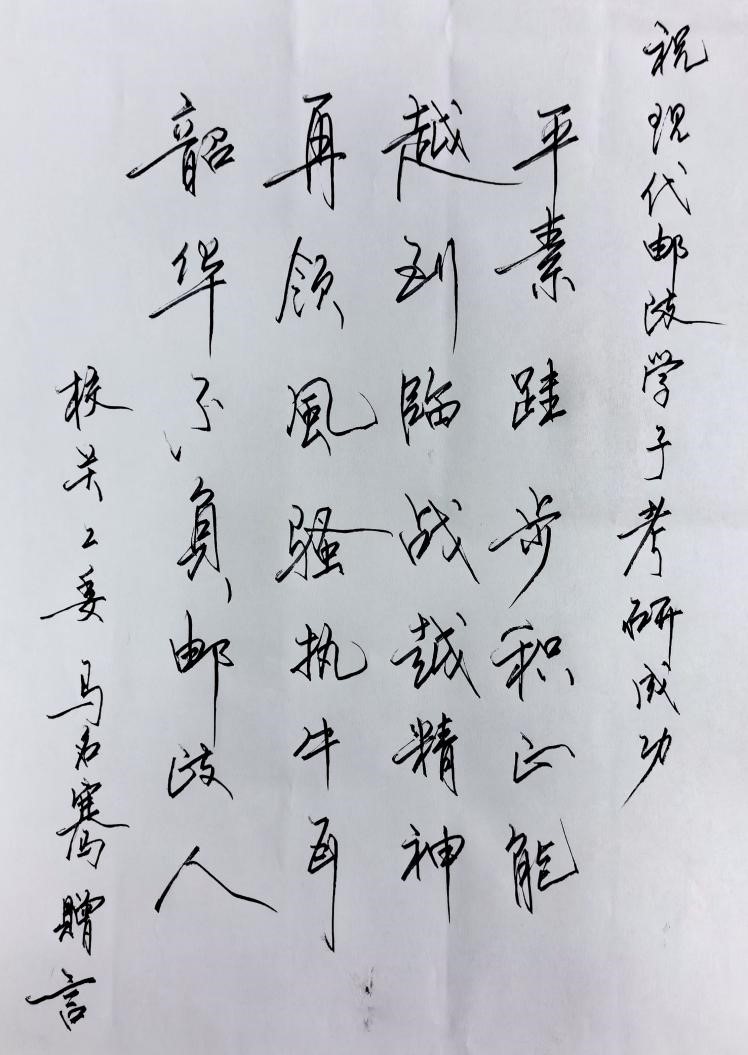 祝现代邮政学子考研成功
平素跬步积正能
越到临战越精神
再领風骚执牛耳
韶华不负邮政人
校关工委 马名骞赠言